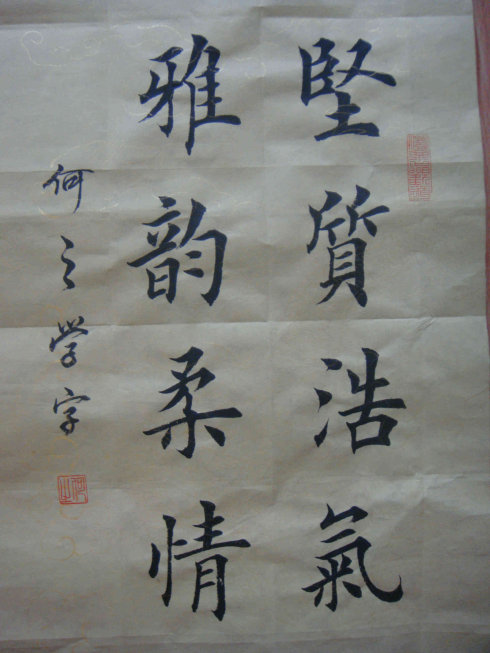 堅質浩氣
雅韵柔情
何之学字